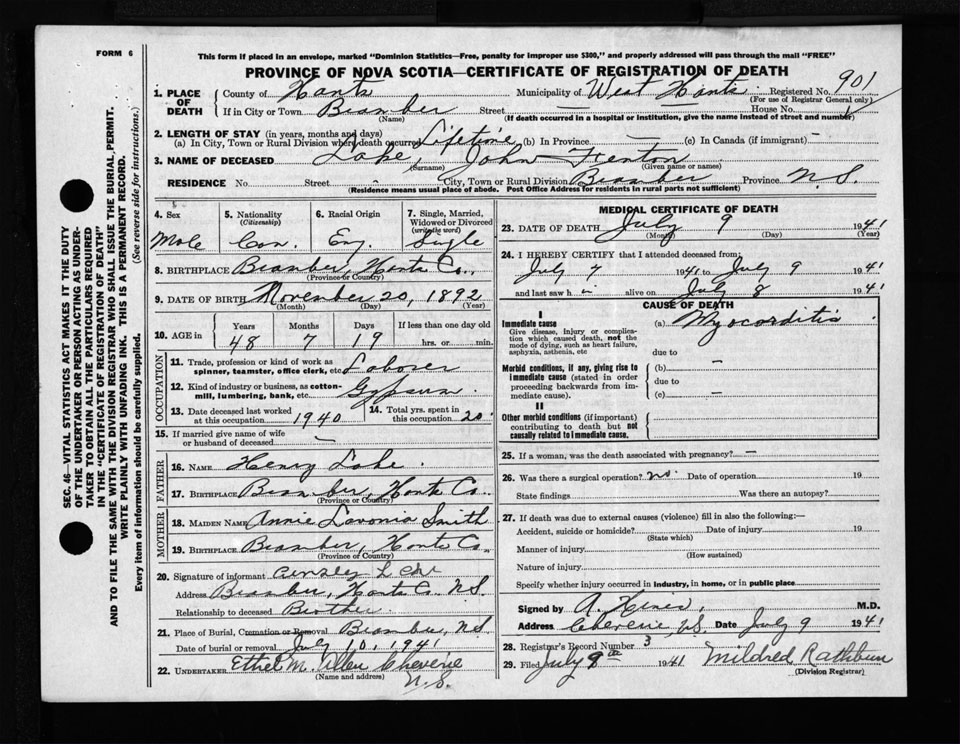 FORM 6
This form if placed in an envelope, marked "Dominion Statistics—Free, penalty for improper use $300," and properly addressed will pass through the mail "FREE"
PROVINCE OF NOVA SCOTIA—CERTIFICATE OF REGISTRATION OF DEATH
SEC. 46—VITAL STATISTICS ACT MAKES IT THE DUTY
OF THE UNDERTAKER OR PERSON ACTING AS UNDER-
TAKER TO OBTAIN ALL THE PARTICULARS REQUIRED
IN THE "CERTIFICATE OF REGISTRATION OF DEATH"
AND TO FILE THE SAME WITH THE DIVISION REGISTRAR WHO SHALL ISSUE THE BURIAL PERMIT.
WRITE PLAINLY WITH UNFADING INK. THIS IS A PERMANENT RECORD.
Every item of information should be carefully supplied. (See reverse side for instructions.)
1. PLACE OF DEATH
County of Hants Municipality of West Hants Registered No. 901
(For use of Registrar General only)
If in City or Town Bramber Street — House No.
(Name) (If death occurred in a hospital or institution, give the name instead of street and number)
2. LENGTH OF STAY (in years, months and days)
(a) In City, Town or Rural Division where death occurred Lifetime (b) In Province — (c) In Canada (if immigrant) —
3. NAME OF DECEASED Lake, John Fenton
(Surname) (Given name or names)
RESIDENCE No. Street - City, Town or Rural Division Bramber Province N.S.
(Residence means usual place of abode. Post Office Address for residents in rural parts not sufficient)
4. Sex Male
5. Nationality (Citizenship) Can.
6. Racial Origin Eng.
7. Single, Married, Widowed or Divorced (write the word) Single
8. BIRTHPLACE Bramber, Hants Co.
(Province or Country)
9. DATE OF BIRTH November 20, 1892
(Month) (Day) (Year)
10. AGE in Years 48 Months 7 Days 19 If less than one day old hrs. or min.
OCCUPATION
11. Trade, profession or kind of work as spinner, teamster, office clerk, etc. Laborer
12. Kind of industry or business, as cotton-mill, lumbering, bank, etc. Gypsum
13. Date deceased last worked at this occupation 1940
14. Total yrs. spent in this occupation 20
15. If married give name of wife or husband of deceased —
FATHER
16. NAME Henry Lake
17. BIRTHPLACE Bramber, Hants Co.
(Province or Country)
MOTHER
18. MAIDEN NAME Annie Lavonia Smith
19. BIRTHPLACE Bramber, Hants Co.
(Province or Country)
20. Signature of informant Lake
Address Bramber, Hants Co. N.S.
Relationship to deceased Brother
21. Place of Burial, Cremation or Removal Bramber, N.S.
Date of burial or removal July 10, 1941
22. UNDERTAKER Ethel M. Allen Cheverie
(Name and address) N.S.
MEDICAL CERTIFICATE OF DEATH
23. DATE OF DEATH July 9 1941
(Month) (Day) (Year)
24. I HEREBY CERTIFY that I attended deceased from:
July 7 1941 to July 9 1941
and last saw h im alive on July 8 1941
CAUSE OF DEATH
I
Immediate cause
Give disease, injury or complication which caused death, not the mode of dying, such as heart failure, asphyxia, asthenia, etc
(a) Myocarditis
due to
Morbid conditions, if any, giving rise to immediate cause (stated in order proceeding backwards from immediate cause).
(b) —
due to
(c) —
II
Other morbid conditions (if important) contributing to death but not causally related to immediate cause.
25. If a woman, was the death associated with pregnancy? —
26. Was there a surgical operation? no. Date of operation 19
State findings Was there an autopsy?
27. If death was due to external causes (violence) fill in also the following:—
Accident, suicide or homicide? Date of injury 19
(State which)
Manner of injury
(How sustained)
Nature of injury
Specify whether injury occurred in industry, in home, or in public place
Signed by A. M.D.
Address Cheverie N.S. Date July 9 1941
28. Registrar's Record Number 3
29. Filed July 9th 1941 Mildred Rathbun
(Division Registrar)